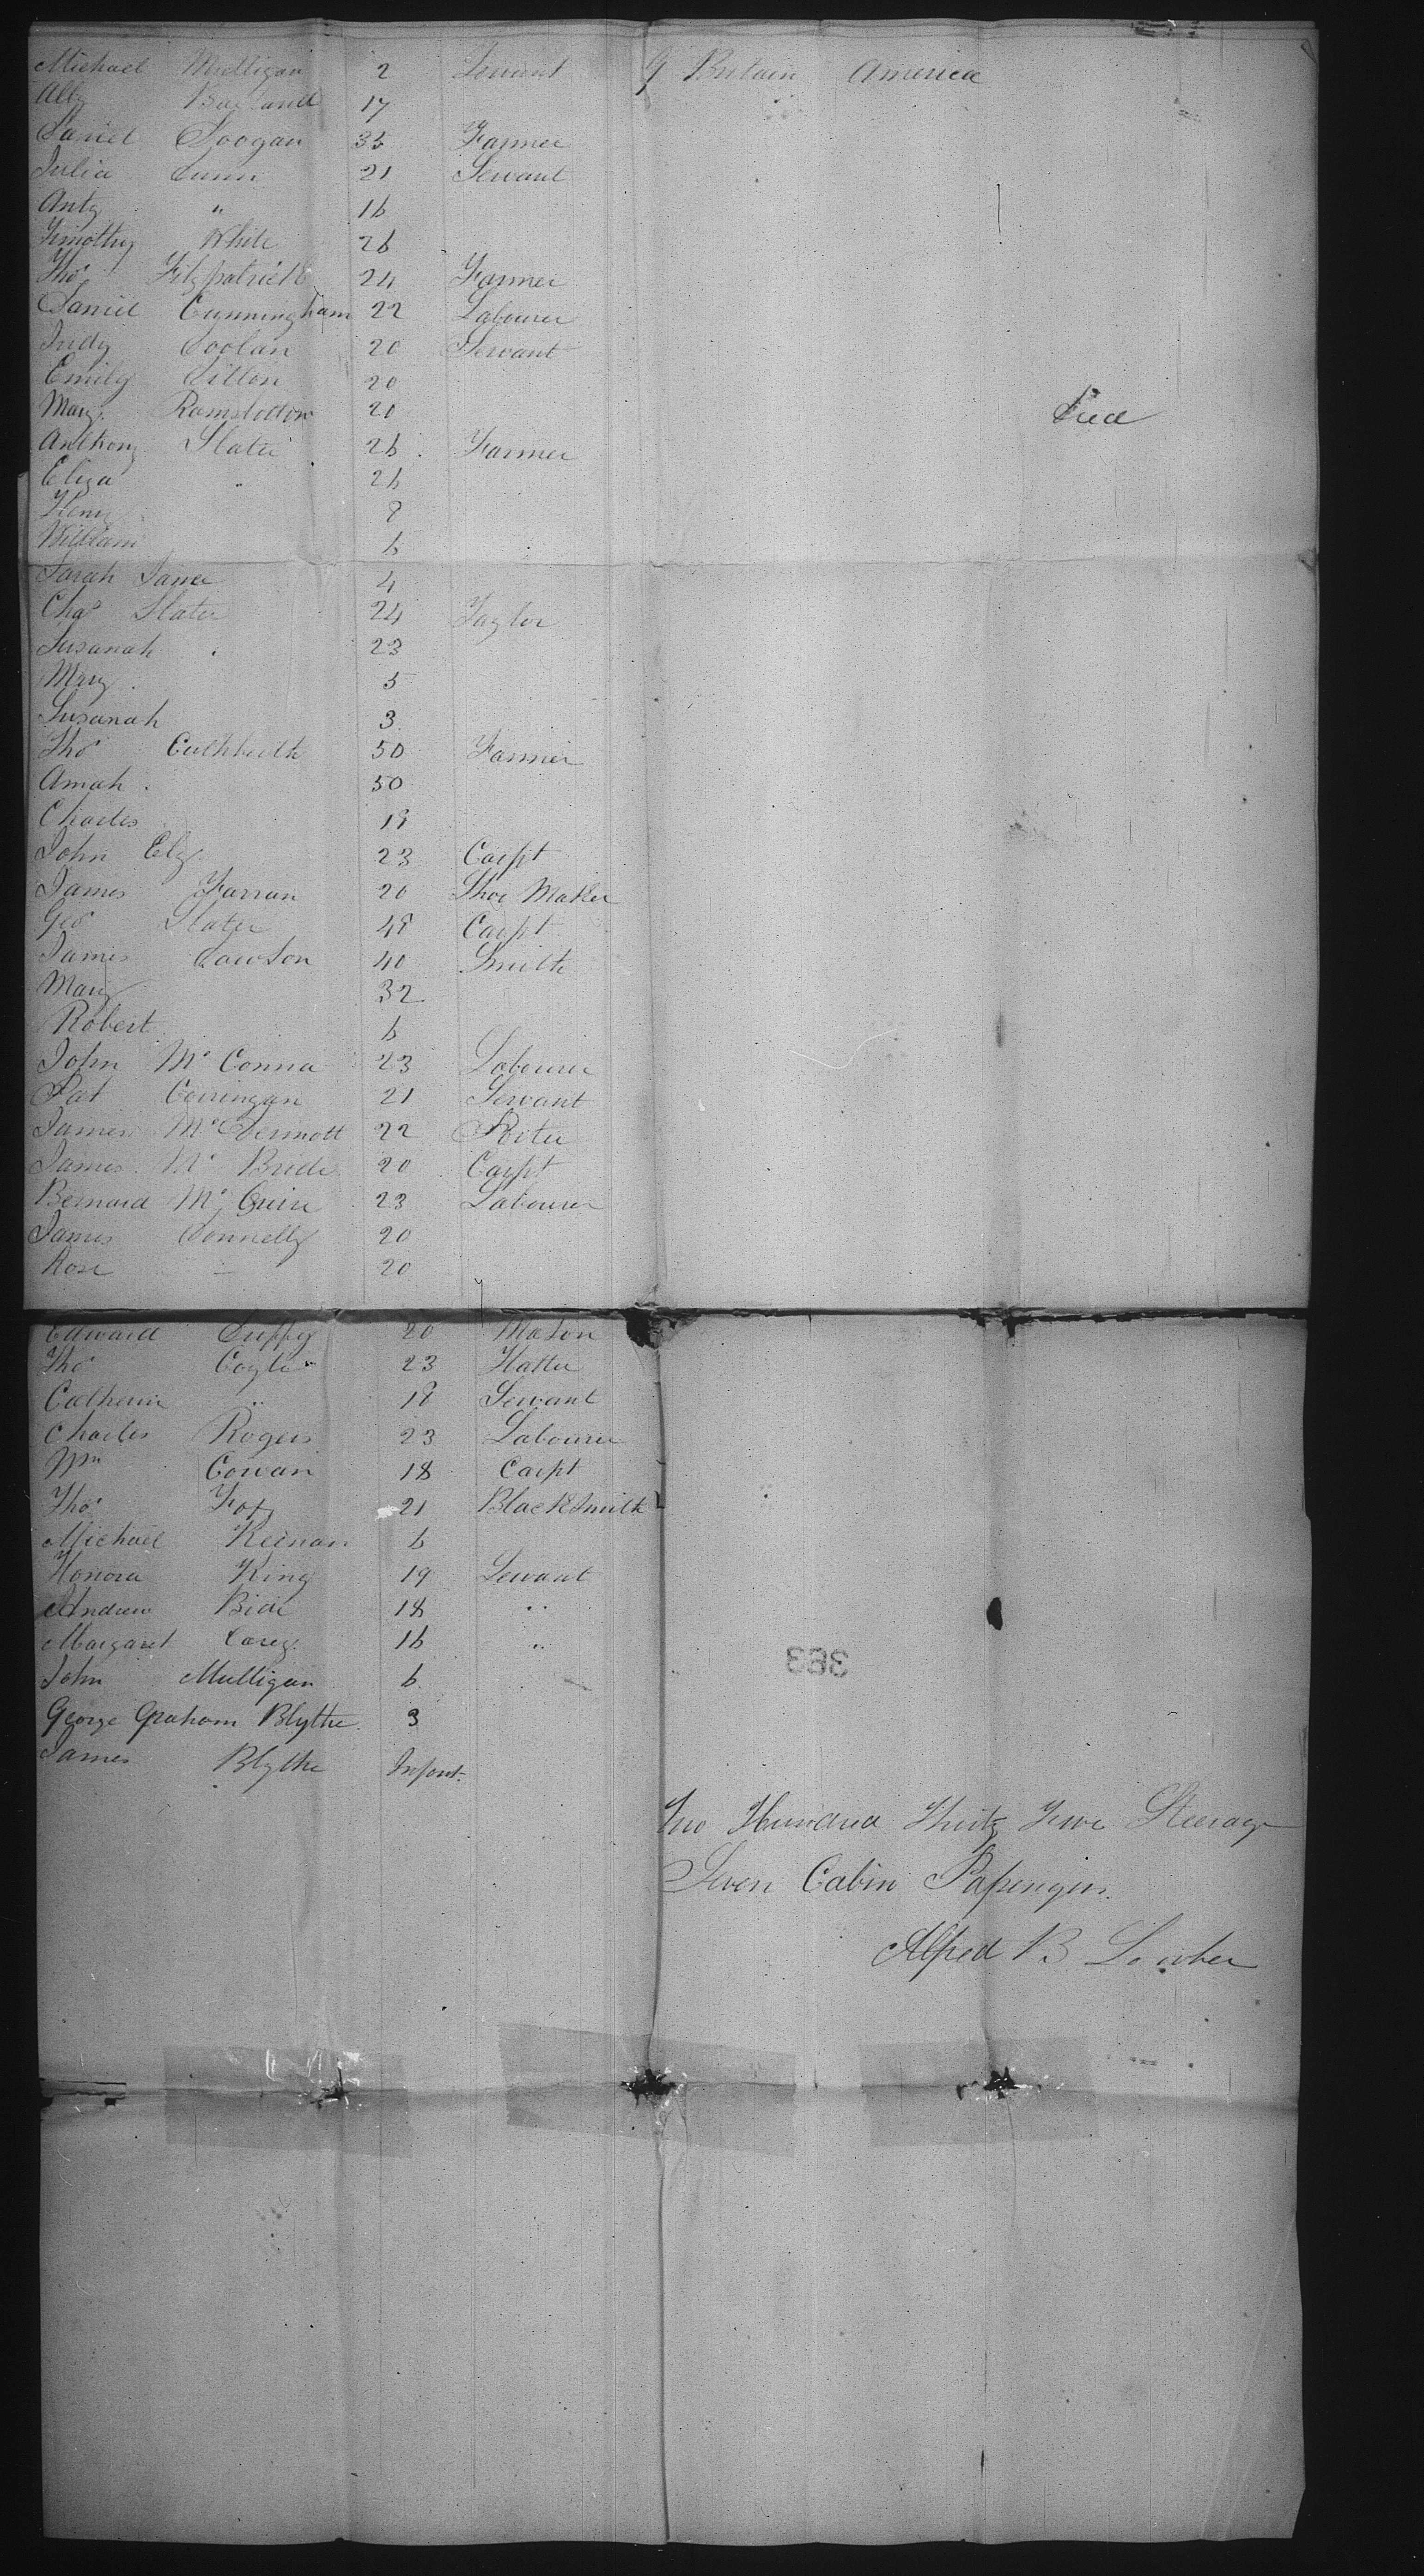 Michael Mulligan 2 Servant G Britain America
Ally 17
Daniel Doogan 35 Farmer
Julia Dunn 21 Servant
Anty " 16
Timothy White 26
Thos Fitzpatrick 24 Farmer
Daniel Cunningham 22 Labourer
Judy Doolan 20 Servant
Emily Dillon 20
Mary Ramsbottom 20 Died
Anthony Slater 26 Farmer
Eliza " 26
Henry 8
William 6
Sarah Jane 4
Chas Slater 24 Taylor
Susanah 23
Mary 5
Susanah 3
Thos Cuthberth 50 Farmer
Amah 50
Charles 18
John Ely 23 Carpt
James Farran 20 Shoe Maker
Geo Slater 48 Carpt
James Dawson 40 Smith
Mary 32
Robert 6
John Mc Conna 23 Labourer
Pat Corringan 21 Servant
James McDermott 22 Porter
James Mc Bride 20 Carpt
Bernard Mc Guire 23 Labourer
James Donnelly 20
Rose — 20
Edward Duffy 20 Mason
Thos Coyle 23 Hatter
Catherine " 18 Servant
Charles Rogers 23 Labourer
Wm Cowan 18 Carpt
Thos Foy 21 BlackSmith
Michael Keenan 6
Honora King 19 Servant
Andrew 18 "
Margaret Carey 16 "
John Mulligan 6
383
George Graham Blythe 3
James Blythe Infant
Two Hundred Thirty Steerage
Seven Cabin Passengers.
Alfred B